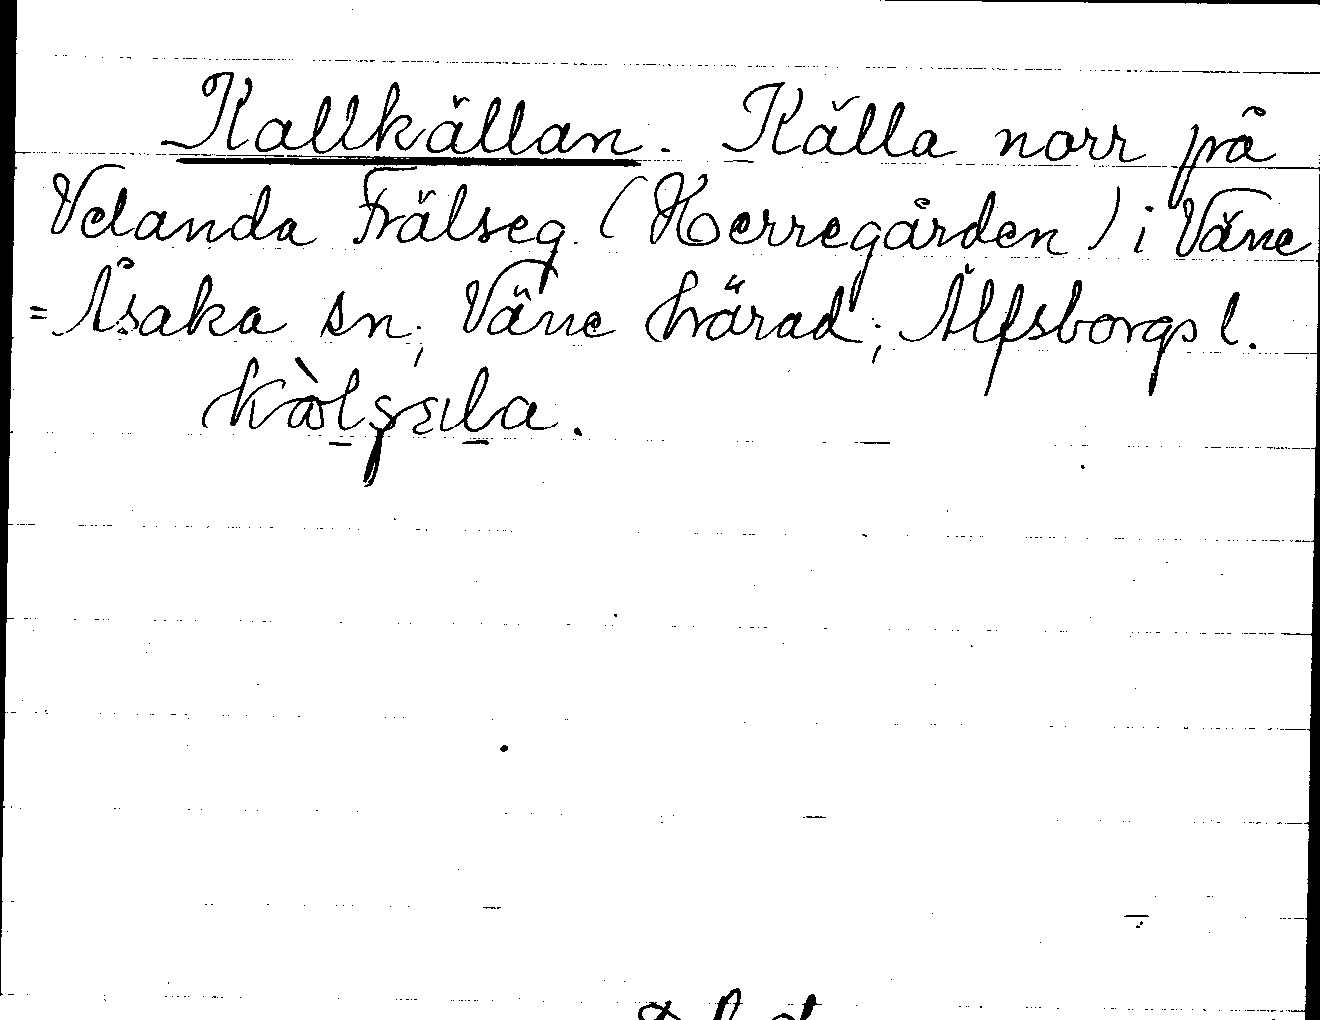 Kallkällan. Källa norr på
Velanda Frälseg. (Herregården) i Väne
=Åsaka sn; Väne härad; Älfsborgs l.